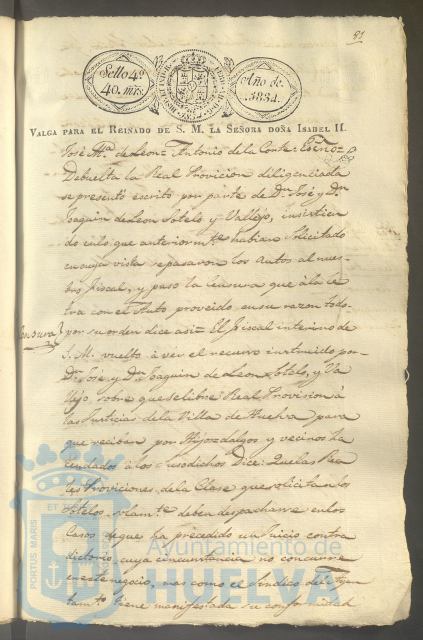 91
Sello 4º
40. mrs.
Año de.
1834.
VALGA PARA EL REINADO DE S. M. LA SEÑORA DOÑA ISABEL II.
José Mª de Leon = Antonio de la Corte =
Debuelta la Real Provicion diligenciada
se presentó escrito por parte de Dn José y Dn
Joaquin de Leon Sotelo y Vallejo, insistien
do en lo que anteriormte habian Solicitado
en cuya vista se pasaron los Autos al nues-
tro Fiscal, y puso la Censura que à la le
tra con el Auto proveido en su razon todo-
Censura
por su orden dice asi = El Fiscal interino de
S. M. vuelto à ver el recurso instruido por-
Dn José y Dn Joaquin de Leon Sotelo, y Va
llejo, sobre que se libre Real Provision à
las Justicias de la Villa de Huelva para
que reciban por Hijosdalgos y vecinos ha
cendados à los susodichos Dice: Que las Rea
les Proviciones de la Clase que solicitan los
Sotelos, solamte deben despacharse en los
Casos de que ha precedido un Juicio contra
dictorio, cuya circunstancia no concurre
en este negocio, mas como el Sindico del Ayun
tamto tiene manifestada su conformidad
PORTUS MARIS ET
Ayuntamiento de
HUELVA